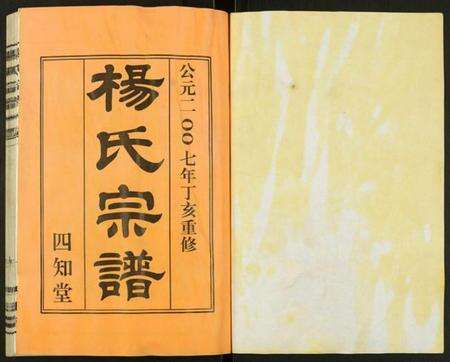 公元二〇〇七年丁亥重修
楊氏宗譜
四知堂